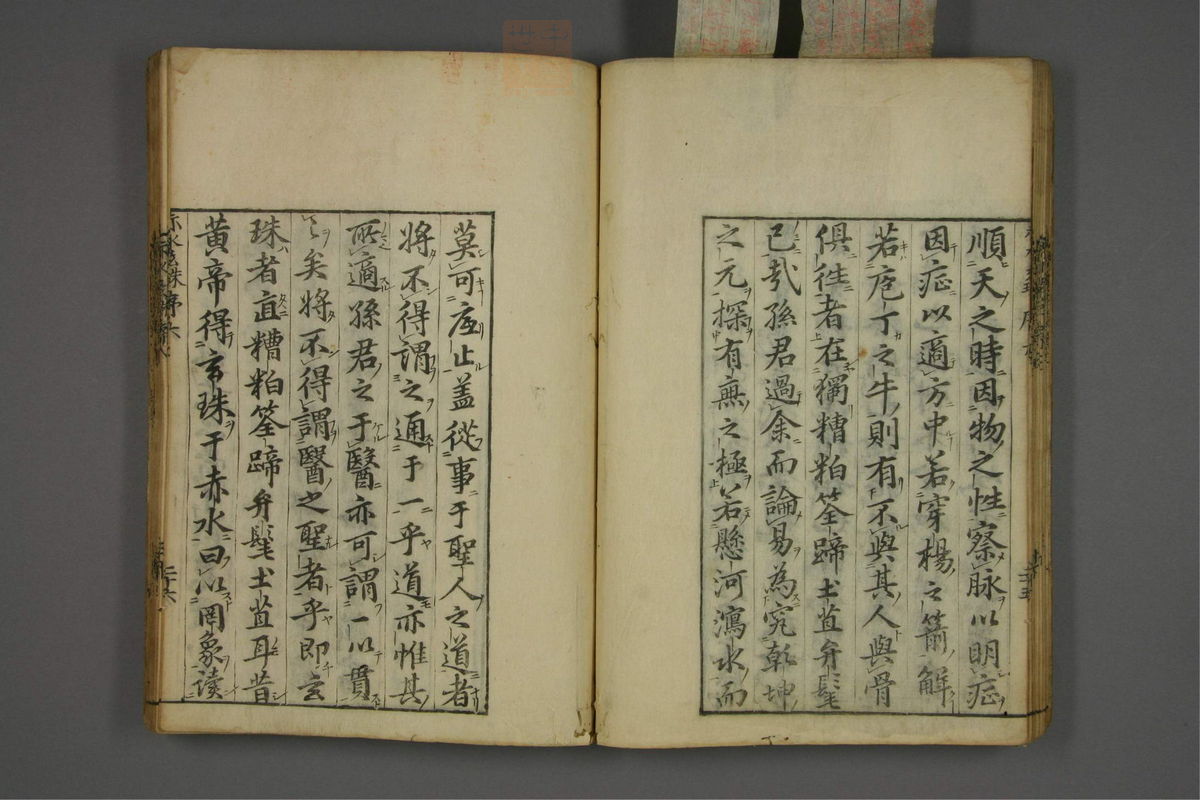 順天之時因物之性察脉以明症
因症以適方中若穿楊之箭解
若庖丁之牛則有不與其人與骨
俱徃者在獨糟粕筌蹄土苴弁髦
已㢤孫君過余而論易為究乾坤
之元探有無之極若懸河瀉水而
莫可底止盖從事于聖人之道者
將不得謂之通于一乎道亦惟其
所適孫君之于醫亦可謂一以貫
之矣將不得謂醫之聖者乎即玄
珠者直糟粕筌蹄弁髦土苴耳昔
黄帝得玄珠于赤水曰以罔象读
赤水玄珠序